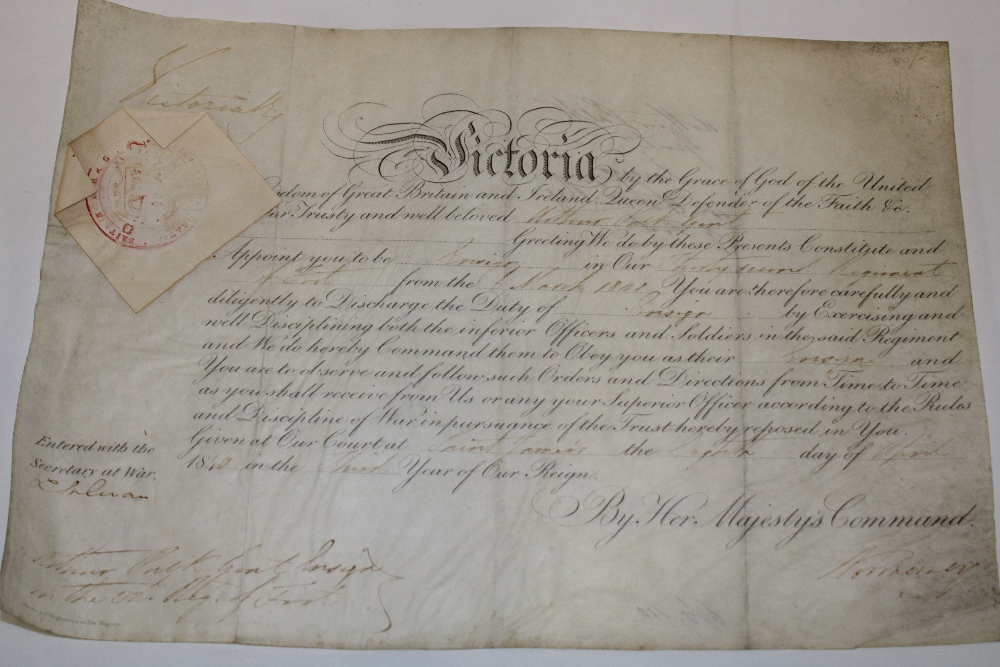 Victoria R
Victoria by the Grace of God of the United
Kingdom of Great Britain and Ireland, Queen, Defender of the Faith &c.
our Trusty and well beloved Arthur Palk Gent
Greeting We do by these Presents Constitute and
Appoint you to be Ensign in Our Regiment
of Foot from the 6 March 1840 You are therefore carefully and
diligently to Discharge the Duty of Ensign by Exercising and
well Disciplining both the inferior Officers and Soldiers in the said Regiment
and We do hereby Command them to Obey you as their Ensign and
You are to observe and follow such Orders and Directions from Time to Time
as you shall receive from Us or any your Superior Officer according to the Rules
and Discipline of War in pursuance of the Trust hereby reposed in You.
Given at Our Court at Saint James's the Eighth day of April
1840 in the Third Year of Our Reign.
Entered with the
Secretary at War.
By Her Majesty's Command.
Normanby
Arthur Palk Gent Ensign
in the 52d Reg. of Foot